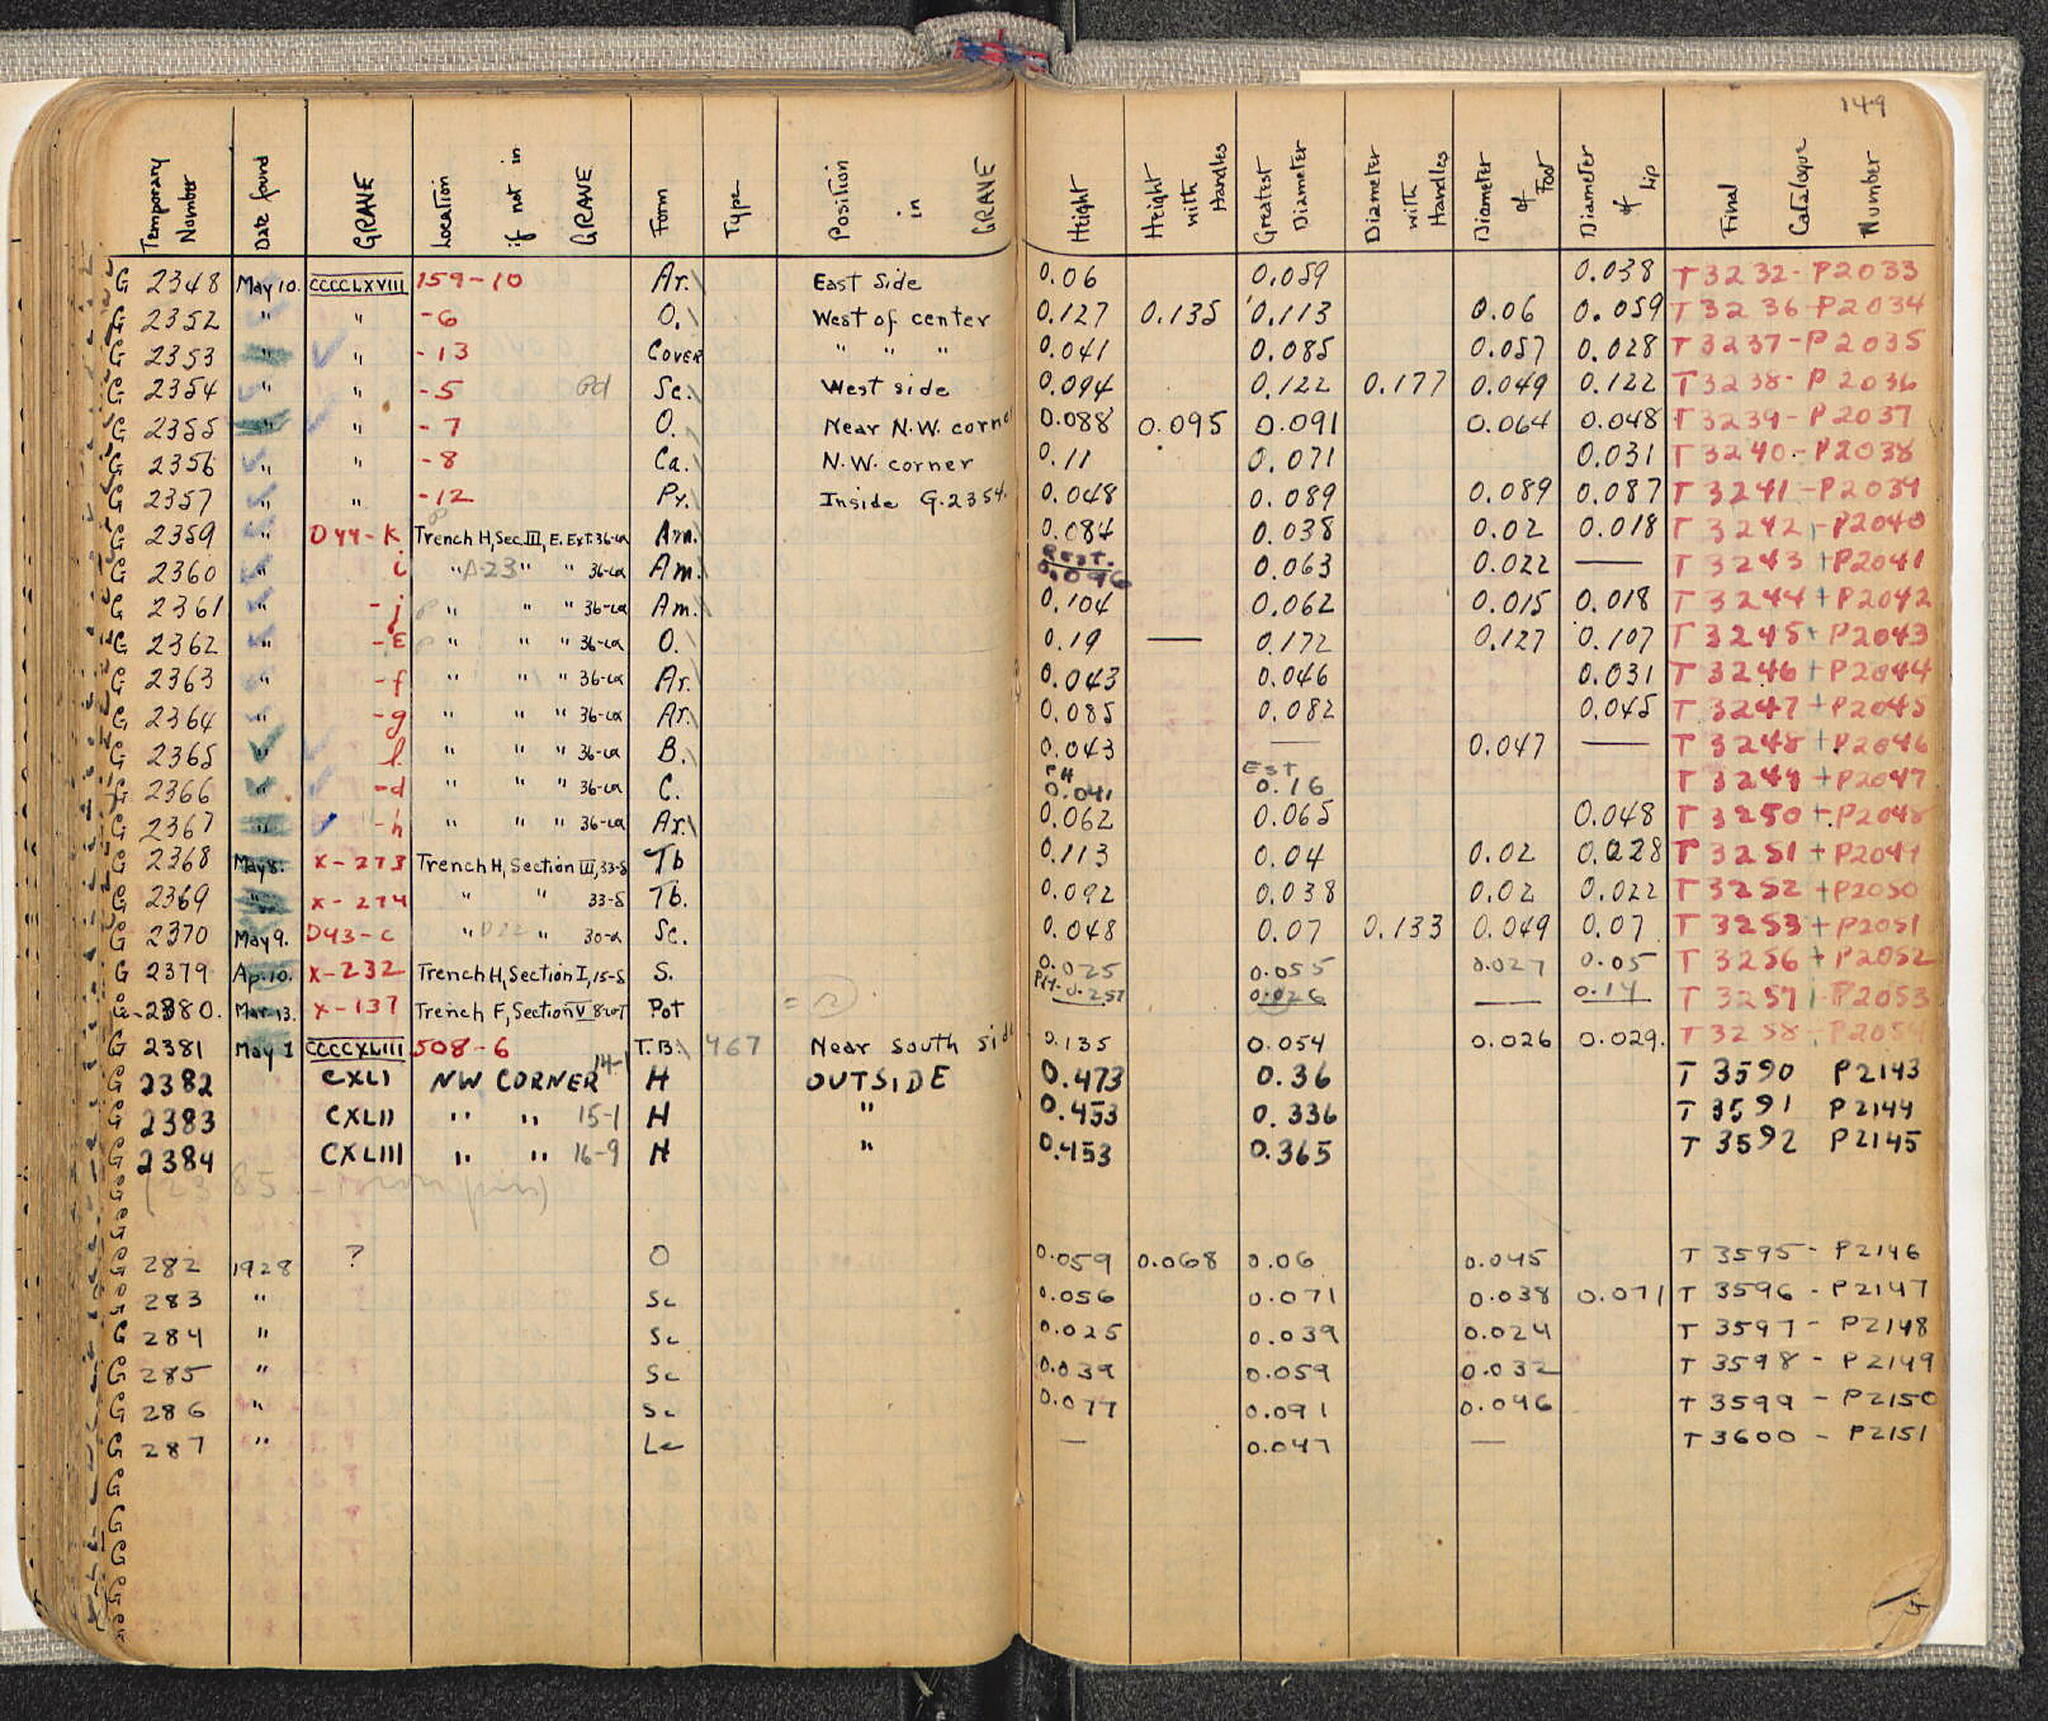 149
Temporary Number | Date found | GRAVE | Location if not in GRAVE | Form | Type | Position in GRAVE | Height | Height with Handles | Greatest Diameter | Diameter with Handles | Diameter of Foot | Diameter of Lip | Final Catalogue Number
G 2348 May 10. CCCCLXVIII 159-10 Ar. East Side 0.06 0.059 0.038 T 3232-P2033
G 2352 " " -6 O. West of center 0.127 0.135 0.113 0.06 0.059 T 3236-P2034
G 2353 " " -13 Cover " " " 0.041 0.085 0.057 0.028 T 3237-P2035
G 2354 " " -5 Sc. West side 0.094 0.122 0.177 0.049 0.122 T 3238-P2036
G 2355 " " -7 O. Near N.W. corner 0.088 0.095 0.091 0.064 0.048 T 3239-P2037
G 2356 " " -8 Ca. N.W. corner 0.11 0.071 0.031 T 3240-P2038
G 2357 " " -12 Py. Inside G.2354. 0.048 0.089 0.089 0.087 T 3241-P2039
G 2359 " D44-K Trench H, Sec. III, E. Ext. 36-ια Am. 0.084 0.038 0.02 0.018 T 3242-P2040
G 2360 " i " A-23 " " 36-ια Am. Rest. 0.096 0.063 0.022 — T 3243+P2041
G 2361 " -j " " " 36-ια Am. 0.104 0.062 0.015 0.018 T 3244+P2042
G 2362 " -E " " " 36-ια O. 0.19 — 0.172 0.127 0.107 T 3245+P2043
G 2363 " -f " " " 36-ια Ar. 0.043 0.046 0.031 T 3246+P2044
G 2364 " -g " " " 36-ια Ar. 0.085 0.082 0.045 T 3247+P2045
G 2365 " l " " " 36-ια B. 0.043 — 0.047 — T 3248+P2046
G 2366 " -d " " " 36-ια C. PH 0.041 Est 0.16 T 3249+P2047
G 2367 " -h " " " 36-ια Ar. 0.062 0.065 0.048 T 3250+P2048
G 2368 May 8. X-273 Trench H, Section III, 33-δ Tb 0.113 0.04 0.02 0.028 T 3251+P2049
G 2369 " X-274 " " 33-δ Tb. 0.092 0.038 0.02 0.022 T 3252+P2050
G 2370 May 9. D43-c " D22 " 30-α Sc. 0.048 0.07 0.133 0.049 0.07 T 3253+P2051
G 2379 Ap. 10. X-232 Trench H, Section I, 15-δ S. 0.025 0.055 0.027 0.05 T 3256+P2052
G 2380. Mar. 13. X-137 Trench F, Section V Pot 0.257 0.14 T 3257-P2053
G 2381 May 1 CCCCXLIII 508-6 T.B. 467 Near south side 0.135 0.054 0.026 0.029. T 3258-P2054
G 2382 CXLI NW CORNER 14-1 H OUTSIDE 0.473 0.36 T 3590 P2143
G 2383 CXLII " " 15-1 H " 0.453 0.336 T 3591 P2144
G 2384 CXLIII " " 16-9 H " 0.453 0.365 T 3592 P2145
G (2385
G
G 282 1928 ? O 0.059 0.068 0.06 0.045 T 3595-P2146
G 283 " Sc 0.056 0.071 0.038 0.071 T 3596-P2147
G 284 " Sc 0.025 0.039 0.024 T 3597-P2148
G 285 " Sc 0.039 0.059 0.032 T 3598-P2149
G 286 " Sc 0.077 0.091 0.046 T 3599-P2150
G 287 " Le — 0.047 — T 3600-P2151
G
G
G
G
G